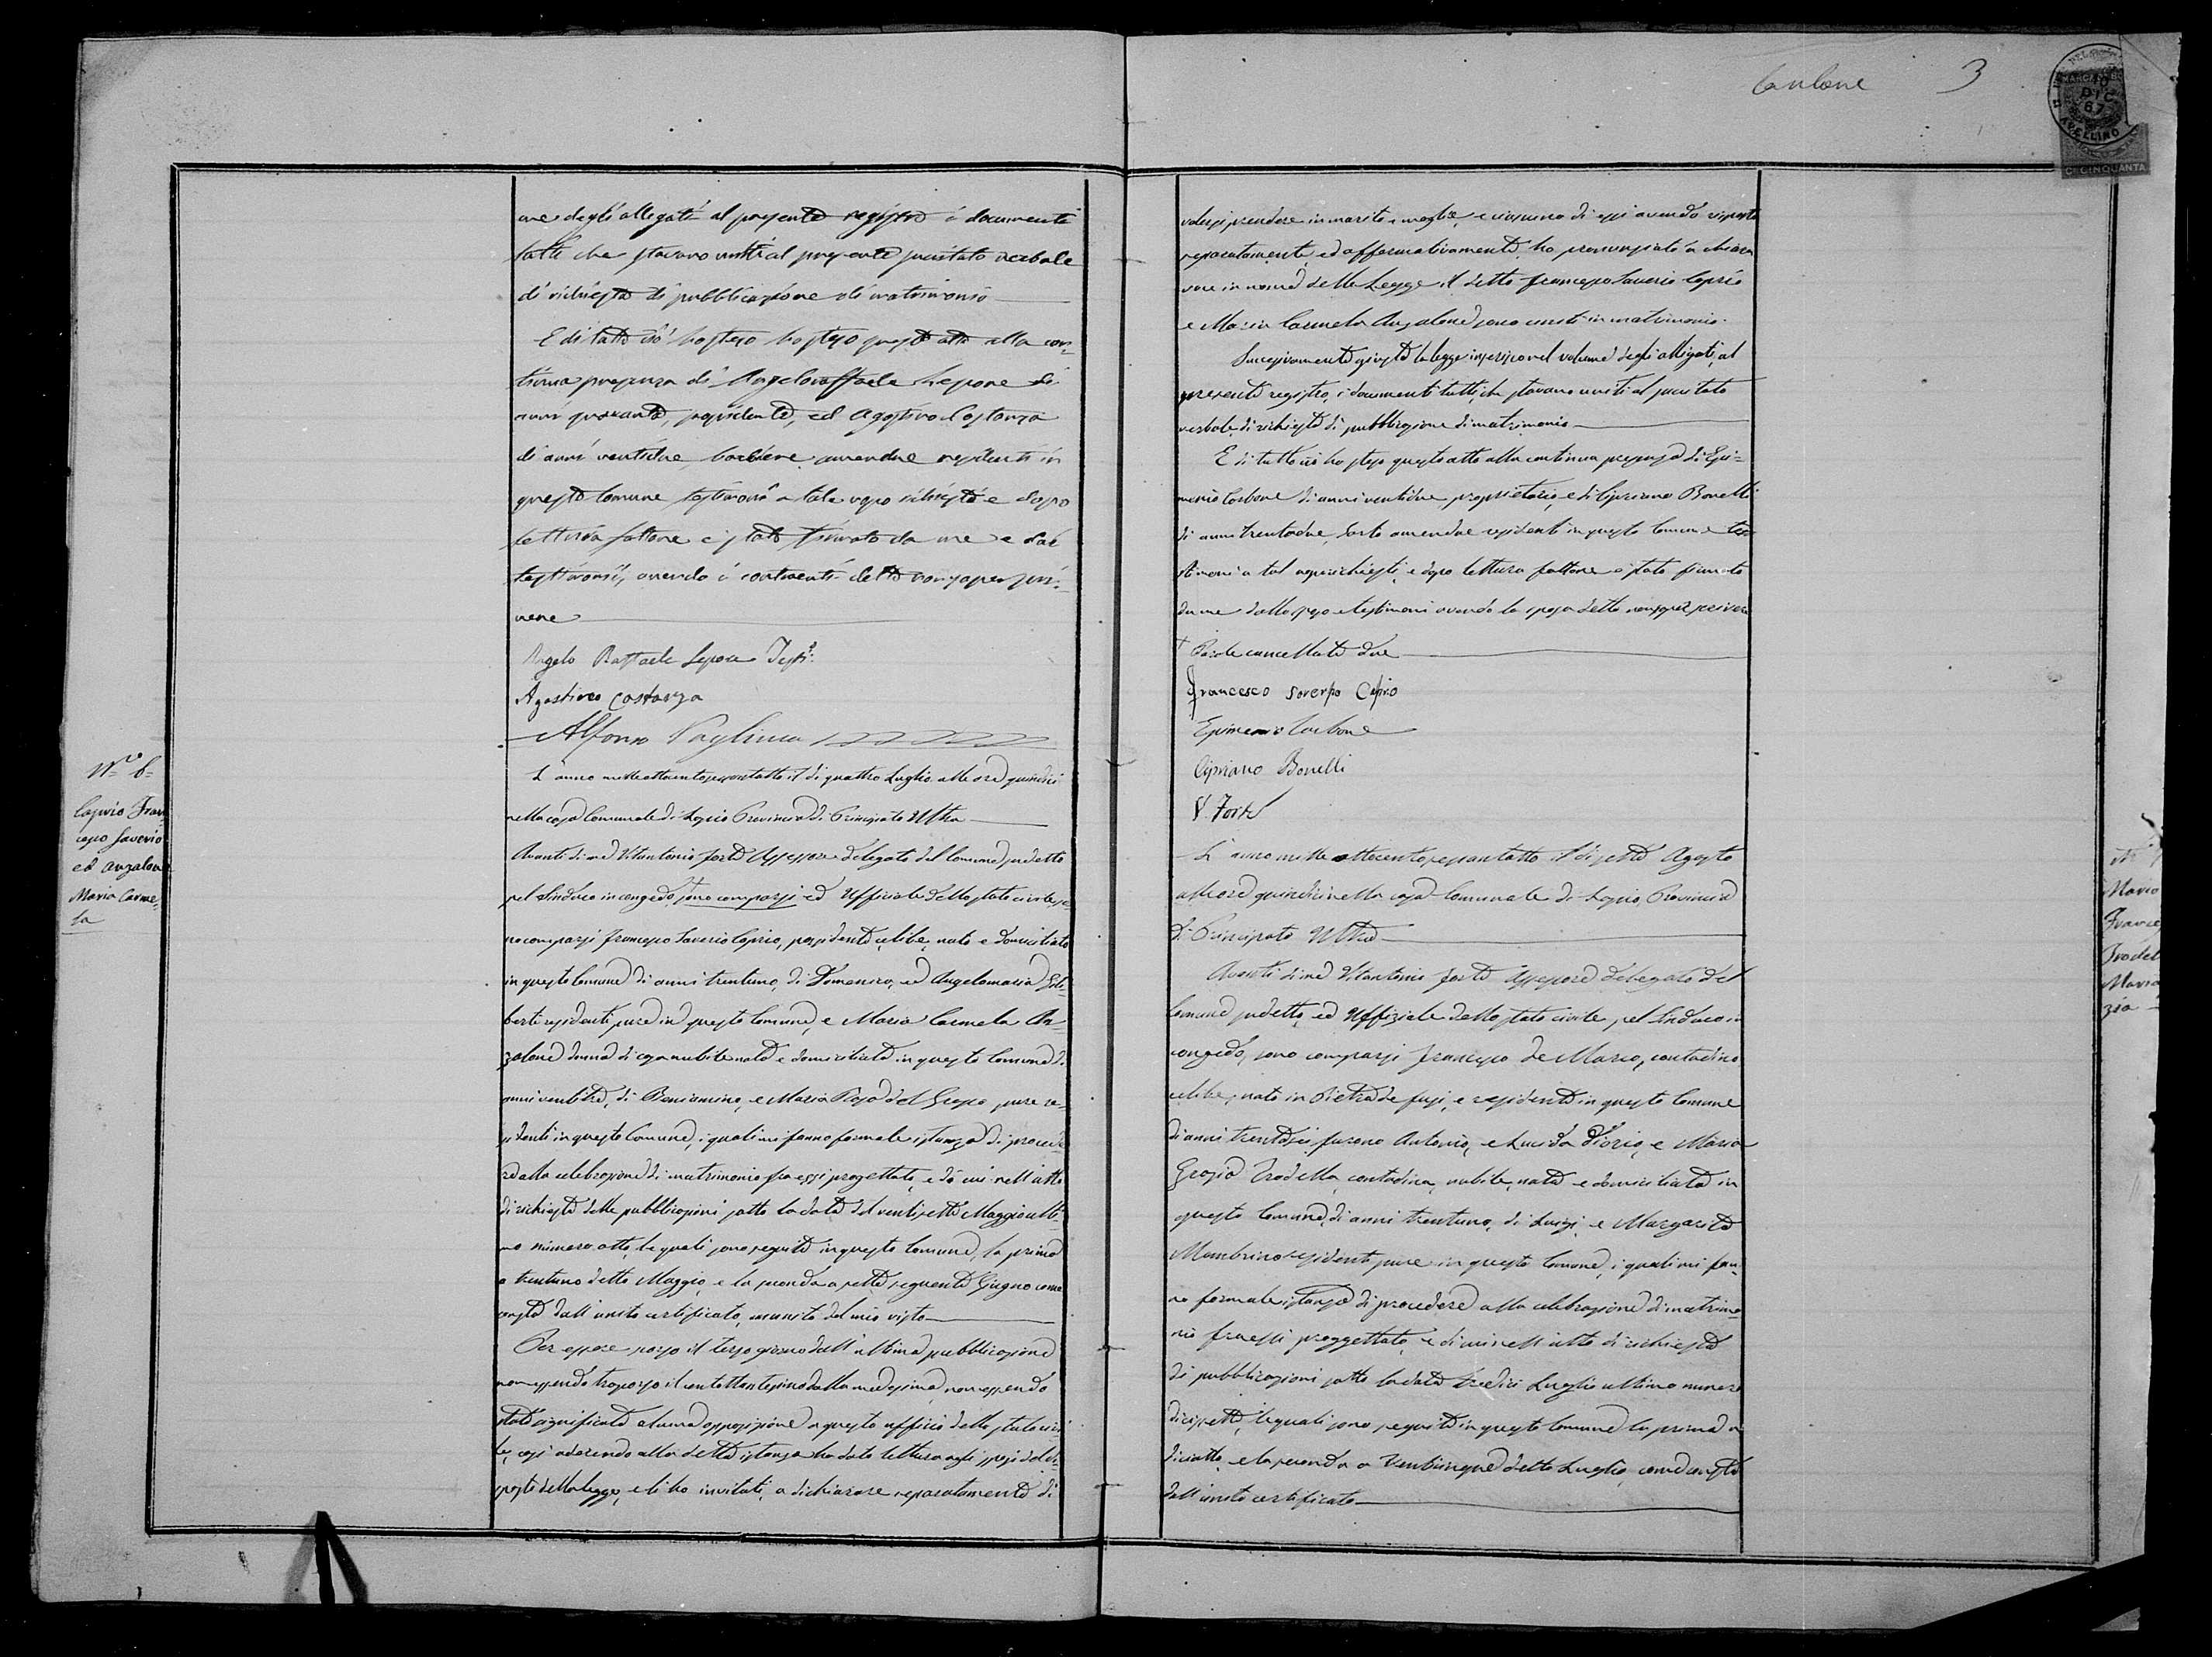 me degli allegati al presente registro i documenti
tutti che stavano uniti al presente precitato verbale
di richiesta di pubblicazione di matrimonio
E di tutto ciò ho steso questo atto alla con-
tinua presenza di Angeloraffaele Lepore di
anni quaranta, possidente, ed Agostino Costanza
di anni ventidue, barbiere amendue residenti in
questo Comune testimoni a tale uopo richiesti e dopo
lettura fattane è stato firmato da me e dai
testimoni, avendo i contraenti detto non saper scri-
vere
Angelo Raffaele Lepore Test.
Agostino Costanza
Alfonso
N.ro 6.
Caprio Fran
cesco Saverio
ed Anzalone
Maria Carme-
la
L'anno milleottocentosessantotto il dì quattro Luglio alle ore quindici
nella casa Comunale di Lapio Provincia di Principato Ultra
Avanti di me Vitantonio Forte Assessore delegato del Comune sudetto
pel Sindaco in congedo, sono comparsi ed Uffiziale dello stato civile, so-
no comparsi Francesco Saverio Caprio, possidente, celibe, nato e domiciliato
in questo Comune di anni trentuno, di Domenico, ed Angelamaria
residenti pure in questo Comune, e Maria Carmela An-
zalone donna di casa nubile nata e domiciliata in questo Comune di
anni ventitre, di Beniamino, e Maria Rosa del Grosso, pure re-
sidenti in questo Comune, i quali mi fanno formale istanza di procede-
re alla celebrazione di matrimonio fra essi progettato, e di cui nell'atto
di richiesta delle pubblicazioni sotto la data del ventisette Maggio ulti-
mo numero otto, le quali sono seguite in questo Comune, la prima
a trentuno detto Maggio, e la seconda a sette seguente Giugno come
consta dall'unito certificato, munito del mio visto
Per essere scorso il terzo giorno dall'ultima pubblicazione
non essendo trascorso il centottantesimo dalla medesima, non essendo
stata significata alcuna opposizione a questo ufficio dello stato civi-
le, così aderendo alla detta istanza ho dato lettura agli sposi del di-
sposto della legge, e li ho invitati a dichiarare separatamente di
3
10
DIC
67
AVELLINO
CINQUANTA
volersi prendere in marito e moglie, e ciascuno di essi avendo risposto
separatamente, ed affermativamente, ho pronunziato a chiara
voce in nome della Legge, il detto Francesco Saverio Caprio
e Maria Carmela Anzalone sono uniti in matrimonio.
Successivamente giusta la legge inserisco nel volume degli alligati, al
presente registro, i documenti tutti, che stavano uniti al precitato
verbale, di richiesta di pubblicazione di matrimonio
E di tutto ciò ho steso questo atto alla continua presenza di Epi-
menio Carbone di anni ventidue, proprietario, e di Cipriano Bonelli
di anni trentadue, sarto amendue residenti in questo Comune tes-
timoni a tal uopo richiesti, e dopo lettura fattane è stato firmato
da me dallo sposo e testimoni avendo la sposa detto non saper scrivere
† Parole cancellate due
Francesco Saverio Caprio
Epimenio Carbone
Cipriano Bonelli
V Forte
L'anno mille ottocentosessantotto il dì sette Agosto
alle ore quindici nella casa Comunale di Lapio Provincia
di Principato Ultra
Avanti di me Vitantonio Forte Assessore delegato del
Comune sudetto, ed Uffiziale dello stato civile, pel Sindaco in
congedo, sono comparsi Francesco de Marco, contadino
celibe, nato in Pietra de fusi, e residente in questo Comune
di anni furono Antonio, e Lucida d'Iorio, e Maria
Grazia Trodella, contadina, nubile, nata e domiciliata in
questo Comune, di anni trentuno, di Luigi, e Margarita
residenti pure in questo Comune, i quali mi fan-
no formale istanza di procedere alla celebrazione di matrimo-
nio fra essi proggettato, e di cui nell'atto di richiesta
di pubblicazioni sotto la data tredici Luglio ultimo numero
dicisette, le quali sono seguite in questo Comune la prima a
diciotto, e la seconda a venticinque detto Luglio, come consta
dall'unito certificato
Marco
France
Trodel
Maria
zia